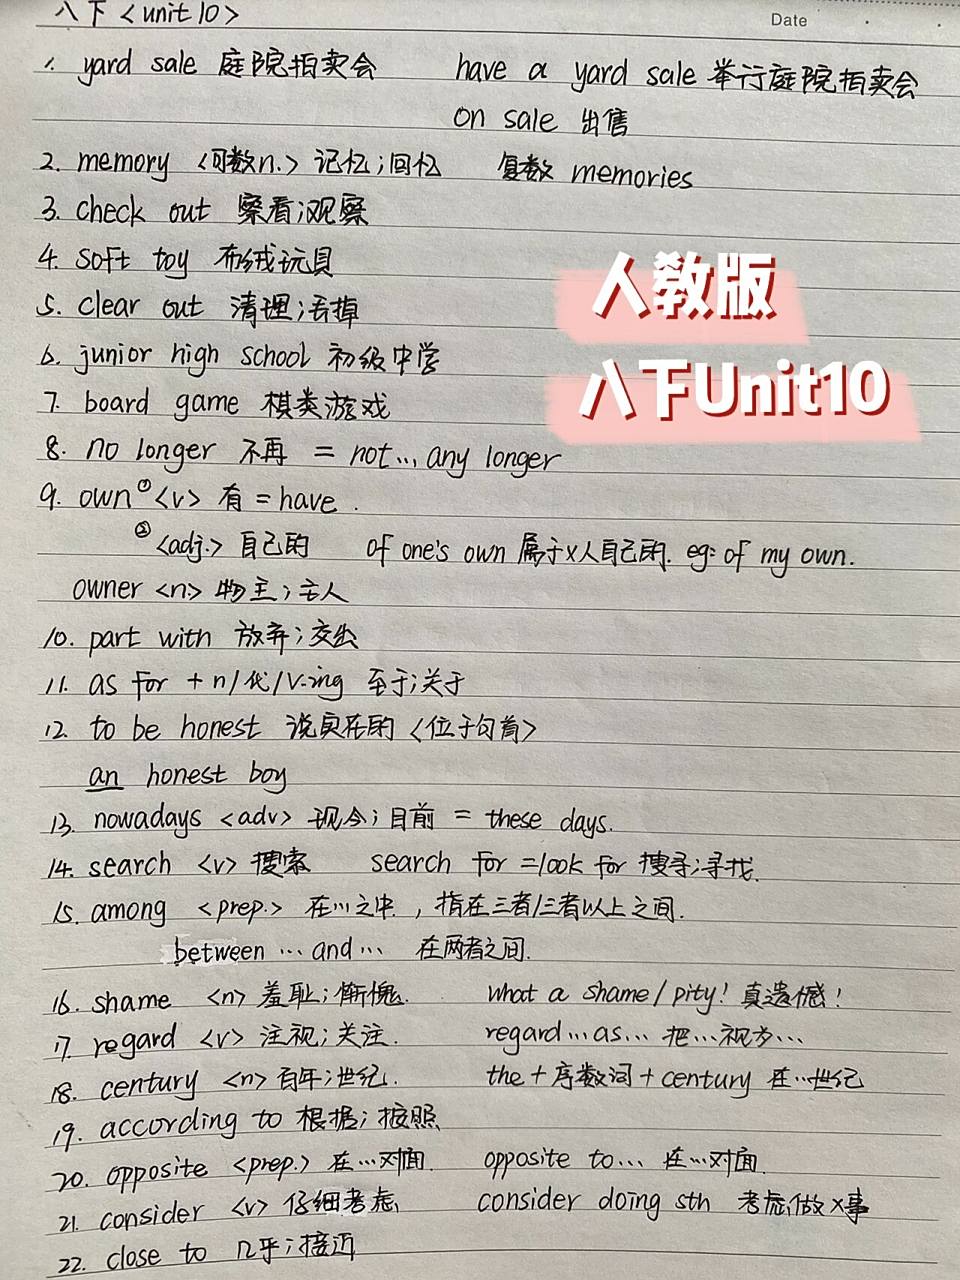 八下<unit 10>
Date
1. yard sale 庭院拍卖会 have a yard sale 举行庭院拍卖会
on sale 出售
2. memory <可数n.> 记忆;回忆 复数 memories
3. check out 察看;观察
4. soft toy 布绒玩具
人教版
5. clear out 清理;丢掉
6. junior high school 初级中学
八下Unit10
7. board game 棋类游戏
8. no longer 不再 = not... any longer
9. own ①<v> 有 = have.
②<adj.> 自己的 of one's own 属于x人自己的. eg: of my own.
owner <n> 物主;主人
10. part with 放弃;交出
11. as for + n/代/V-ing 至于;关于
12. to be honest 说实在的<位于句首>
an honest boy
13. nowadays <adv> 现今;目前 = these days.
14. search <v> 搜索 search for =look for 搜寻;寻找.
15. among <prep.> 在...之中,指在三者/三者以上之间.
between ... and ... 在两者之间.
16. shame <n> 羞耻;惭愧. what a shame/pity! 真遗憾!
17. regard <v> 注视;关注. regard...as... 把...视为...
18. century <n> 百年;世纪. the + 序数词 + century 在...世纪
19. according to 根据;按照
20. opposite <prep.> 在...对面. opposite to... 在...对面.
21. consider <v> 仔细考虑 consider doing sth 考虑做x事
22. close to 几乎;接近